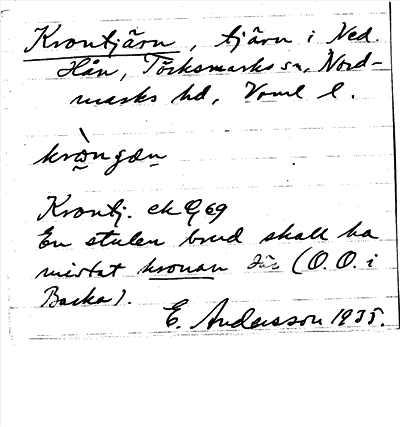 Krontjärn, tjärn i Ned.
Hån, Töcksmarks sn, Nord-
marks hd, Vrml l.
Krontj. ek Q 69
En stulen brud skall ha
mistat kronan där (O. O. i
Backa).
E. Andersson 1935.